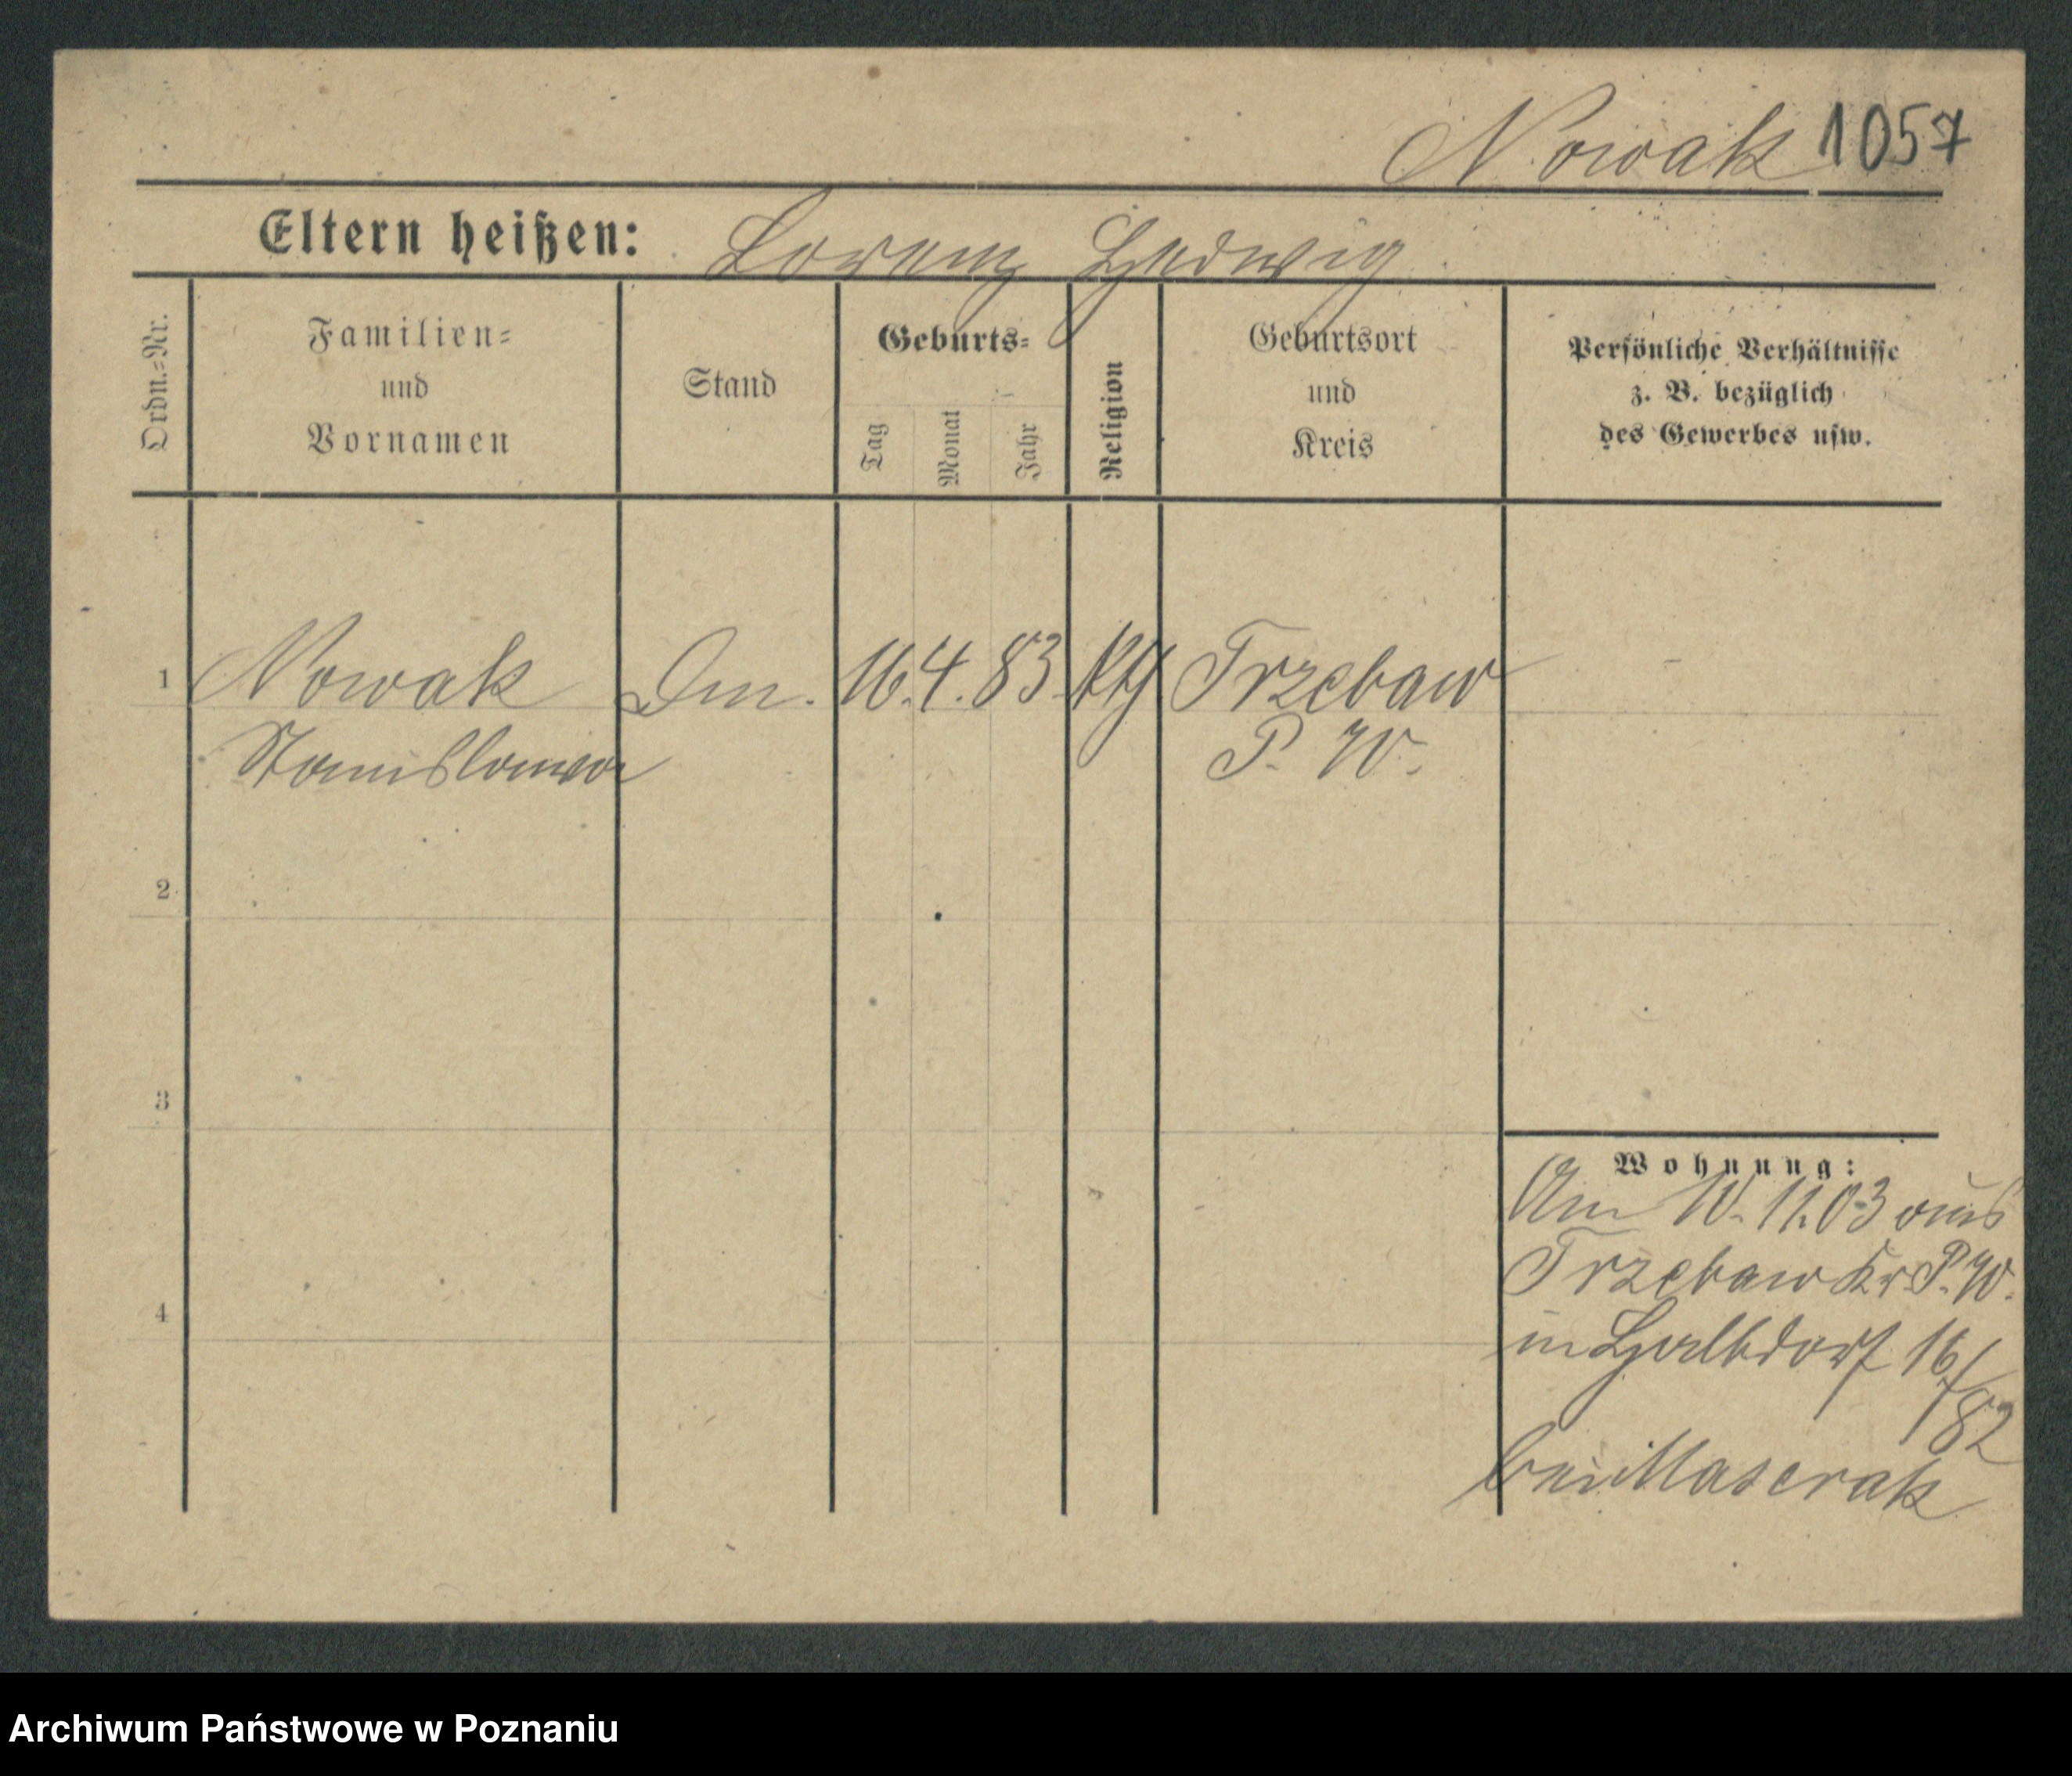 Nowak 1057
Eltern heißen: Lorenz Hedwig
Ordn.=Nr.
Familien=
und
Vornamen
Stand
Geburts=
Tag
Monat
Jahr
Religion
Geburtsort
und
Kreis
Persönliche Verhältnisse
z. B. bezüglich
des Gewerbes usw.
1 Nowak 16.4.83 kth Trzebaw
Stanislawa P. W.
2
3
4
Wohnung:
Am 10.11.03 aus
Trzebaw Kr. P. W.
in Halbdorf 16/82
bei
Archiwum Państwowe w Poznaniu